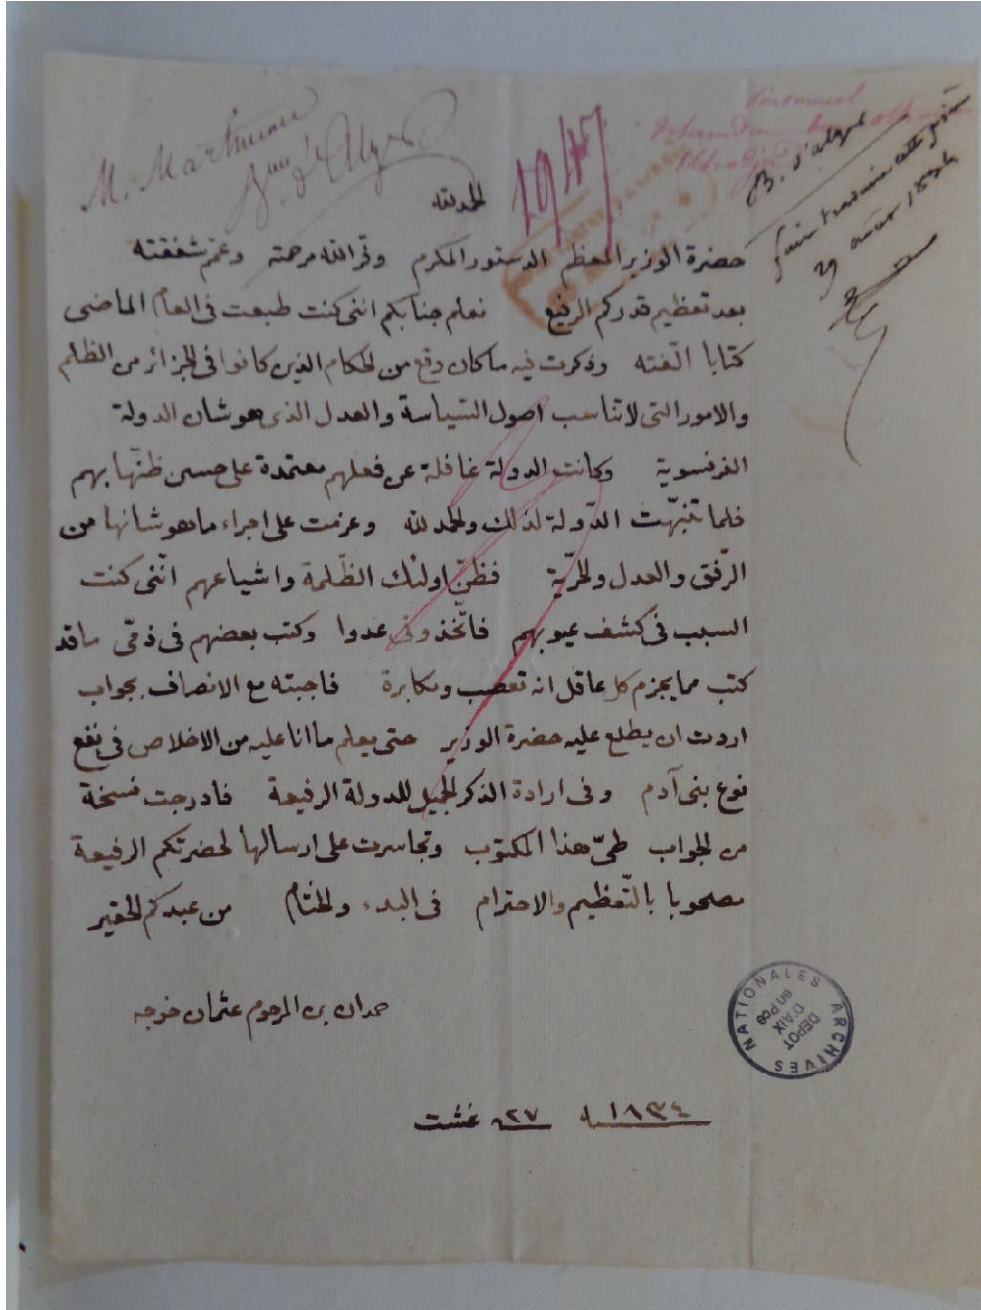 M. Martineau
Bau d'Alger
1947
B. d'Alger
faire traduire cette pièce
29 août 1834
الحمد لله
حضرة الوزير المعظم الدستور المكرم وفر الله مرحمته وعمم شفقته
بعد تعظيم قدركم الرفيع نعلم جنابكم اننى كنت طبعت فى العام الماضى
كتابا الّفته وذكرت فيه ما كان وقع من الحكام الذين كانوا فى الجزائر من الظلم
والامور التى لا تناسب اصول السّياسة والعدل الذى هو شان الدولة
الفرنسوية وكانت الدولة غافلة عن فعلهم معتمدة على حسن ظنّها بهم
فلما تنبّهت الدّولة لذلك والحمد لله وعزمت على اجراء ما هو شانها من
الرّفق والعدل والحرّية فظنّ اولئك الظّلمة واشياعهم انّنى كنت
السبب فى كشف عيوبهم فاتّخذونى عدوا وكتب بعضهم فى ذمّى ما قد
كتب مما يجزم كل عاقل انه تعصب ومكابرة فاجبته مع الانصاف بجواب
اردت ان يطلع عليه حضرة الوزير حتى يعلم ما انا عليه من الاخلاص فى نفع
نوع بنى آدم وفى ارادة الذكر الجميل للدولة الرفيعة فادرجت نسخة
من الجواب طىّ هذا المكتوب وتجاسرت على ارسالها لحضرتكم الرفيعة
مصحوبا بالتّعظيم والاحترام فى البدء والختام من عبدكم الحقير
حمدان بن المرحوم عثمان خوجه
ARCHIVES NATIONALES
DEPOT
D'AIX
en Pce
١٨٣٤ سنة ٢٧ غشت